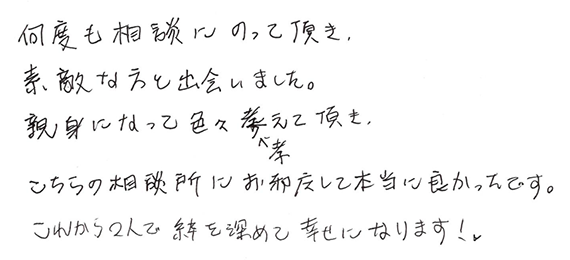 何度も相談にのって頂き、
素敵な方と出会いました。
親身になって色々考えて頂き、
考
こちらの相談所にお邪魔して本当に良かったです。
これから2人で絆を深めて幸せになります!